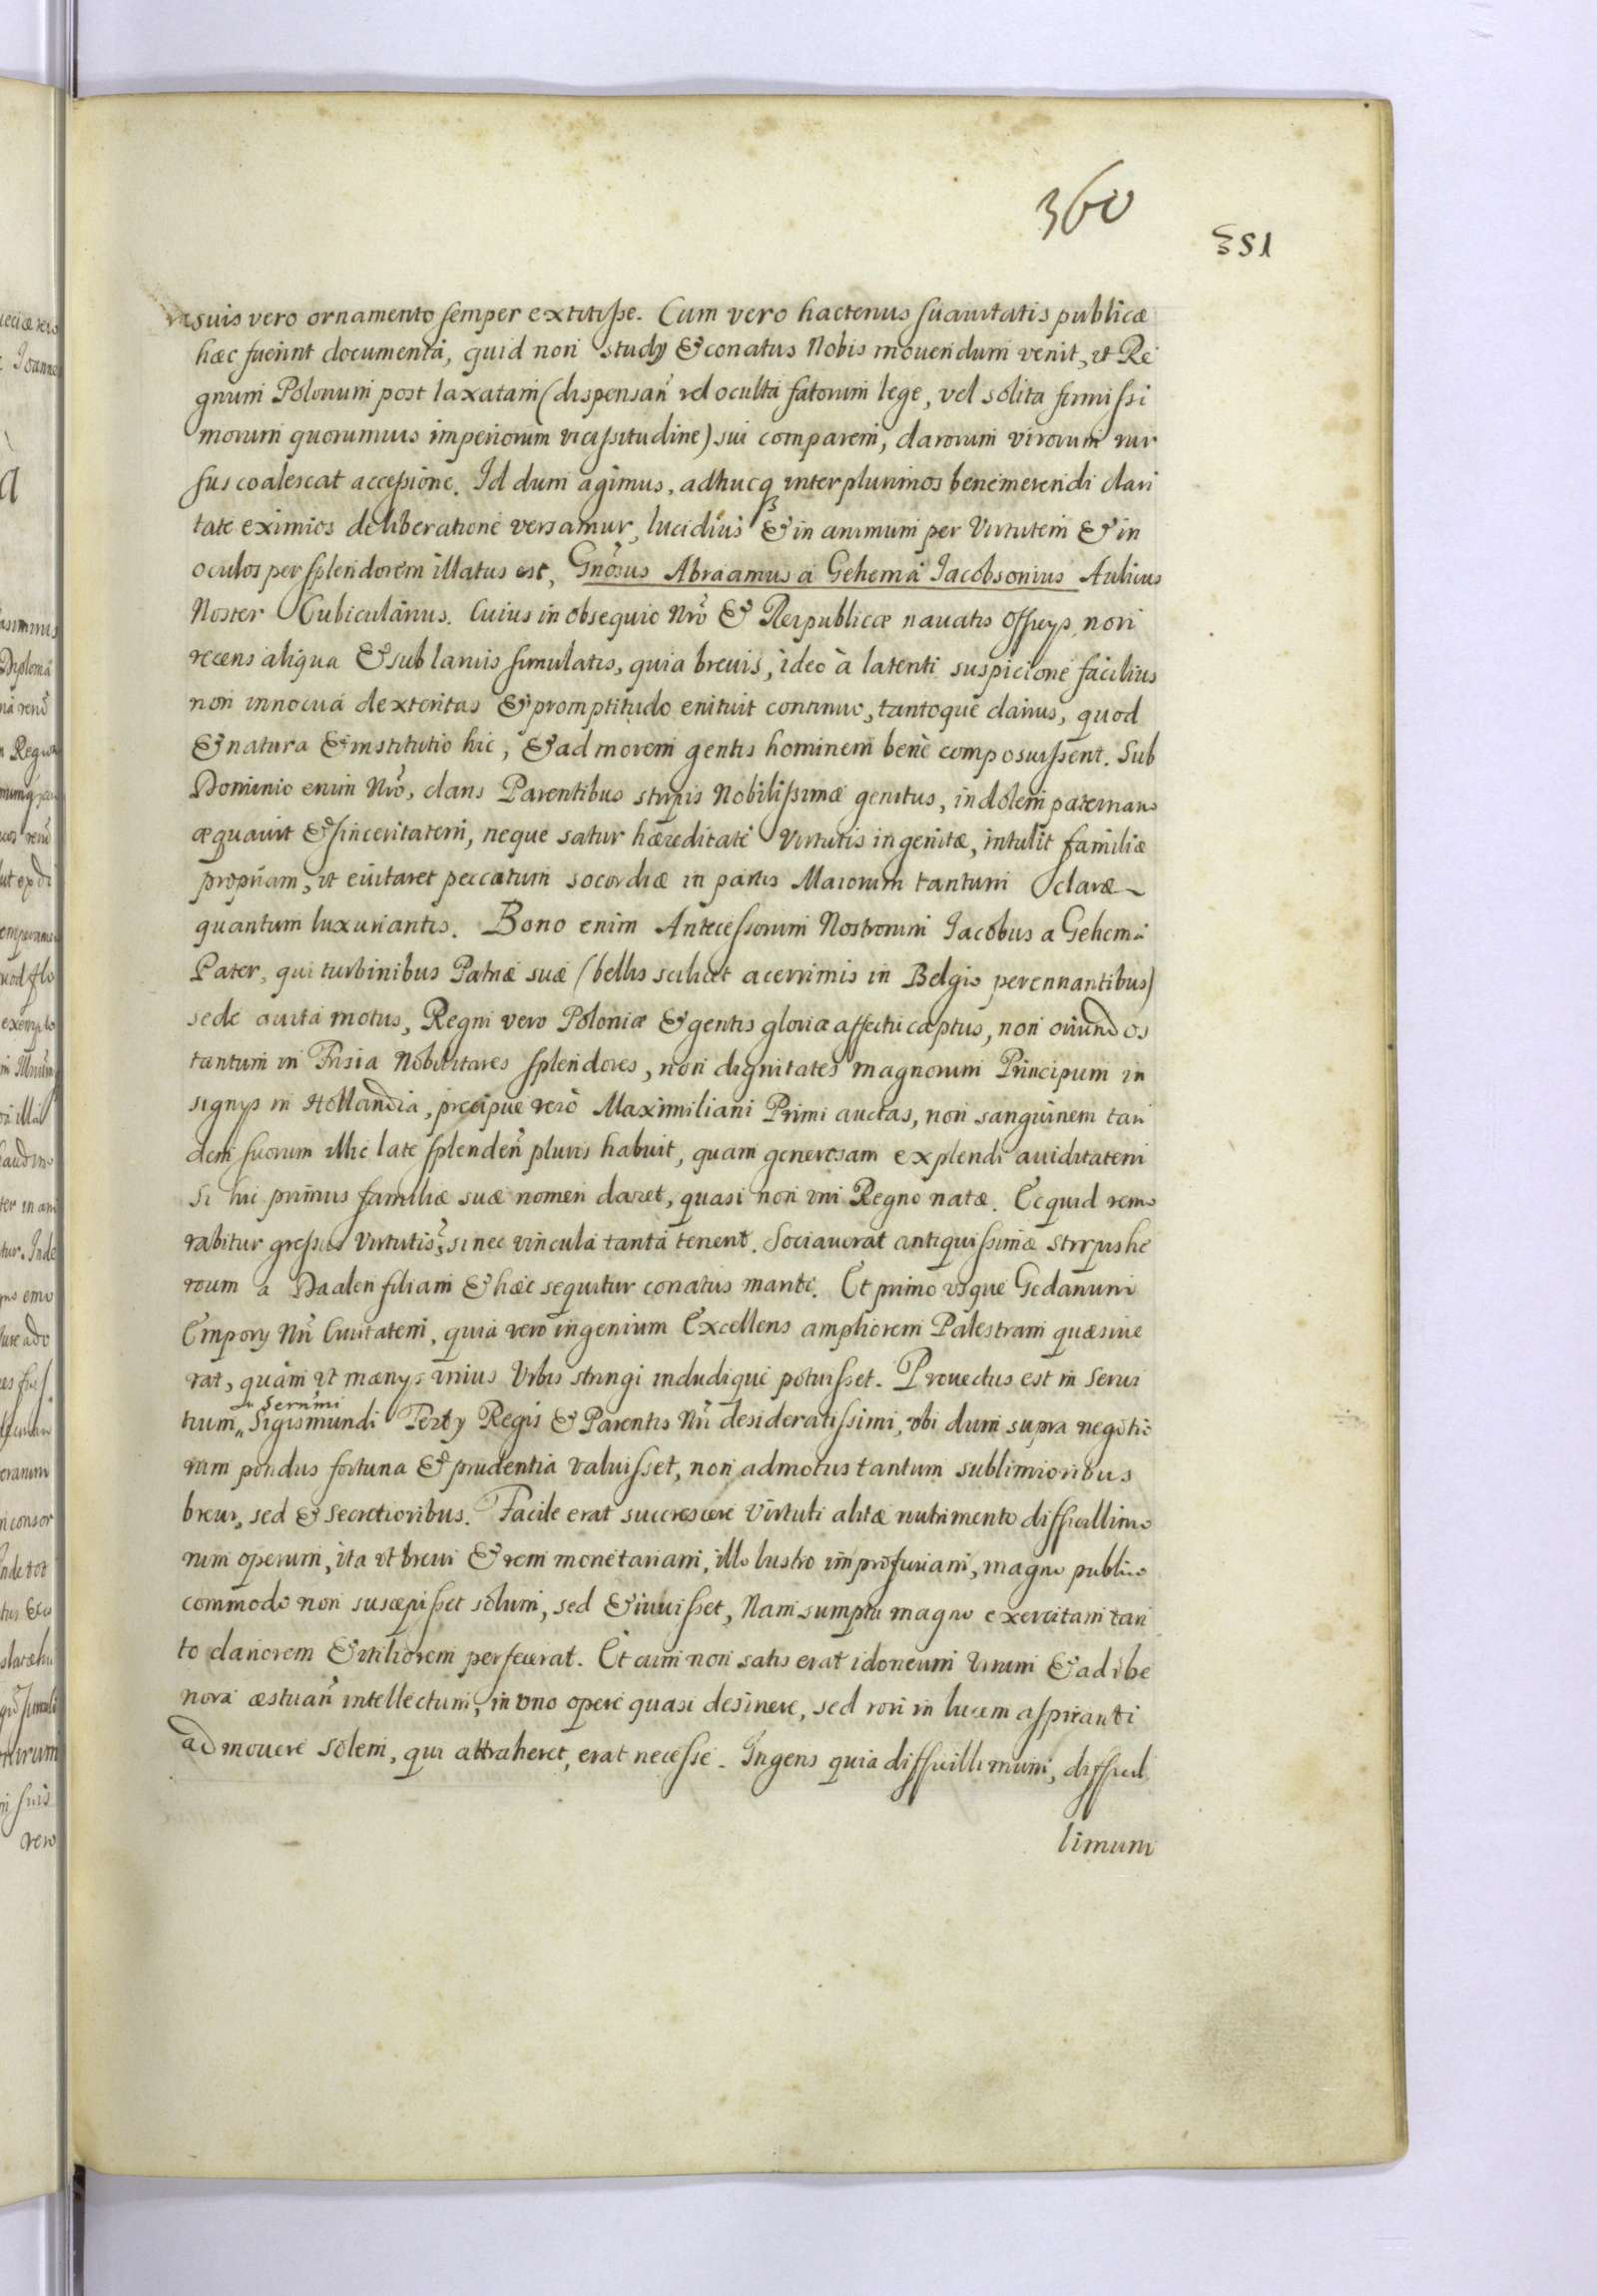 360
351
suis vero ornamento semper extitisse. Cum vero hactenus suauitatis publicæ
hæc fuerint documenta, quid non studÿ & conatus Nobis mouendum venit, vt Re
gnum Polonum post laxatam (dispensañ vel oculta fatorum lege, vel solita firmissi
morum quorumuis imperiorum vicissitudine) sui comparem, clarorum virorum rur
sus coalescat accessione. Id dum agimus, adhucq interplurimos benemerendi clari
tate eximios deliberatione versamur, lucidius & in animum per Virtutem & in
oculos per splendorem illatus est, Gñosus Abraamus a Gehema Iacobsonius Aulicus
Noster Cubicularius. Cuius in obsequio Nrõ & Reipublicæ nauatis Officÿs, non
recens aliqua & sub laruis simulatis, quia breuis, ideo à latenti suspicione facilius
non innocua dexteritas & promptitudo enituit continuo, tantoque clarius, quod
& natura & institutio hic, & ad morem gentis hominem benè composuissent. Sub
Dominio enim Nrõ, claris Parentibus stirpis Nobilissimæ genitus, indolem paternam
æquauit & sinceritatem, neque satur hæreditate Virtutis ingenitæ, intulit familiæ
propriam, vt euitaret peccatum socordiæ in partis Maiorum tantum claræ
quantum luxuriantis. Bono enim Antecessorum Nostrorum Iacobus a Gehema
Pater, qui turbinibus Patriæ suæ (bellis scilicet acerrimis in Belgio perennantibus)
sede auita motus, Regni vero Poloniæ & gentis gloriæ affectu captus, non oriundos
tantum in Frisia Nobilitares splendores, non dignitates magnorum Principum in
signÿs in Hollandia, præcipue verò Maximiliani Primi auctas, non sanguinem tan
dem suorum illic late splendeñ pluris habuit, quam generosam explendi auiditatem
si hic primus familiæ suæ nomen daret, quasi non vni Regno natæ. Ecquid remo
rabitur gressus Virtutis, si nec vincula tanta tenent. Sociauerat antiquissimæ stirpis he
roum a Daalen filiam & hæc sequitur conatus mariti. Et primo vsque Gedanum
Emporÿ Nri Ciuitatem, quia vero ingenium Excellens ampliorem Palestram quæsiue
rat, quàm vt mænÿs vnius Vrbis stringi includique potuisset. Prouectus est in serui
Sermi
tium Sigismundi Tertÿ Regis & Parentis Nri desideratissimi, vbi dum supra negotio
rum pondus fortuna & prudentia valuisset, non admotus tantum sublimioribus
breui, sed & secretioribus. Facile erat succrescere Virtuti alitæ nutrimento difficillimo
rum operum, ita vt breui & rem monetariam, illo lustro improfuriam, magno publico
commodo non suscæpisset solum, sed & iuuisset, Nam sumptu magno exercitam tan
to clariorem & vtiliorem perfecerat. Et cum non satis erat idoneum Virum & ad ibe
nova æstuañ intellectum, in vno opere quasi desinere, sed rori in lucem aspiranti
admouere solem, qui attraheret, erat necesse. Ingens quia difficillimum, difficil
limum